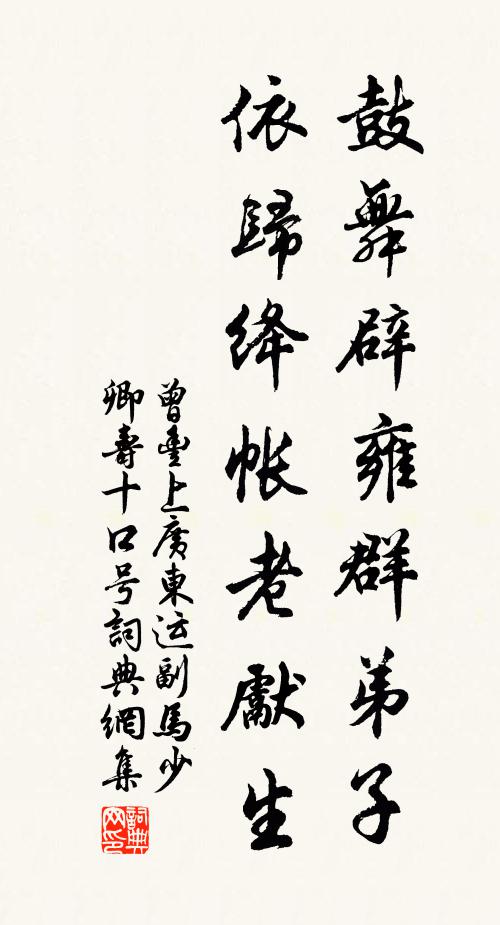 鼓舞辟雍群弟子
依歸絳帳老獻生
曾豐上廣東运副馬少
卿壽十口号詞典網集
詞典网印